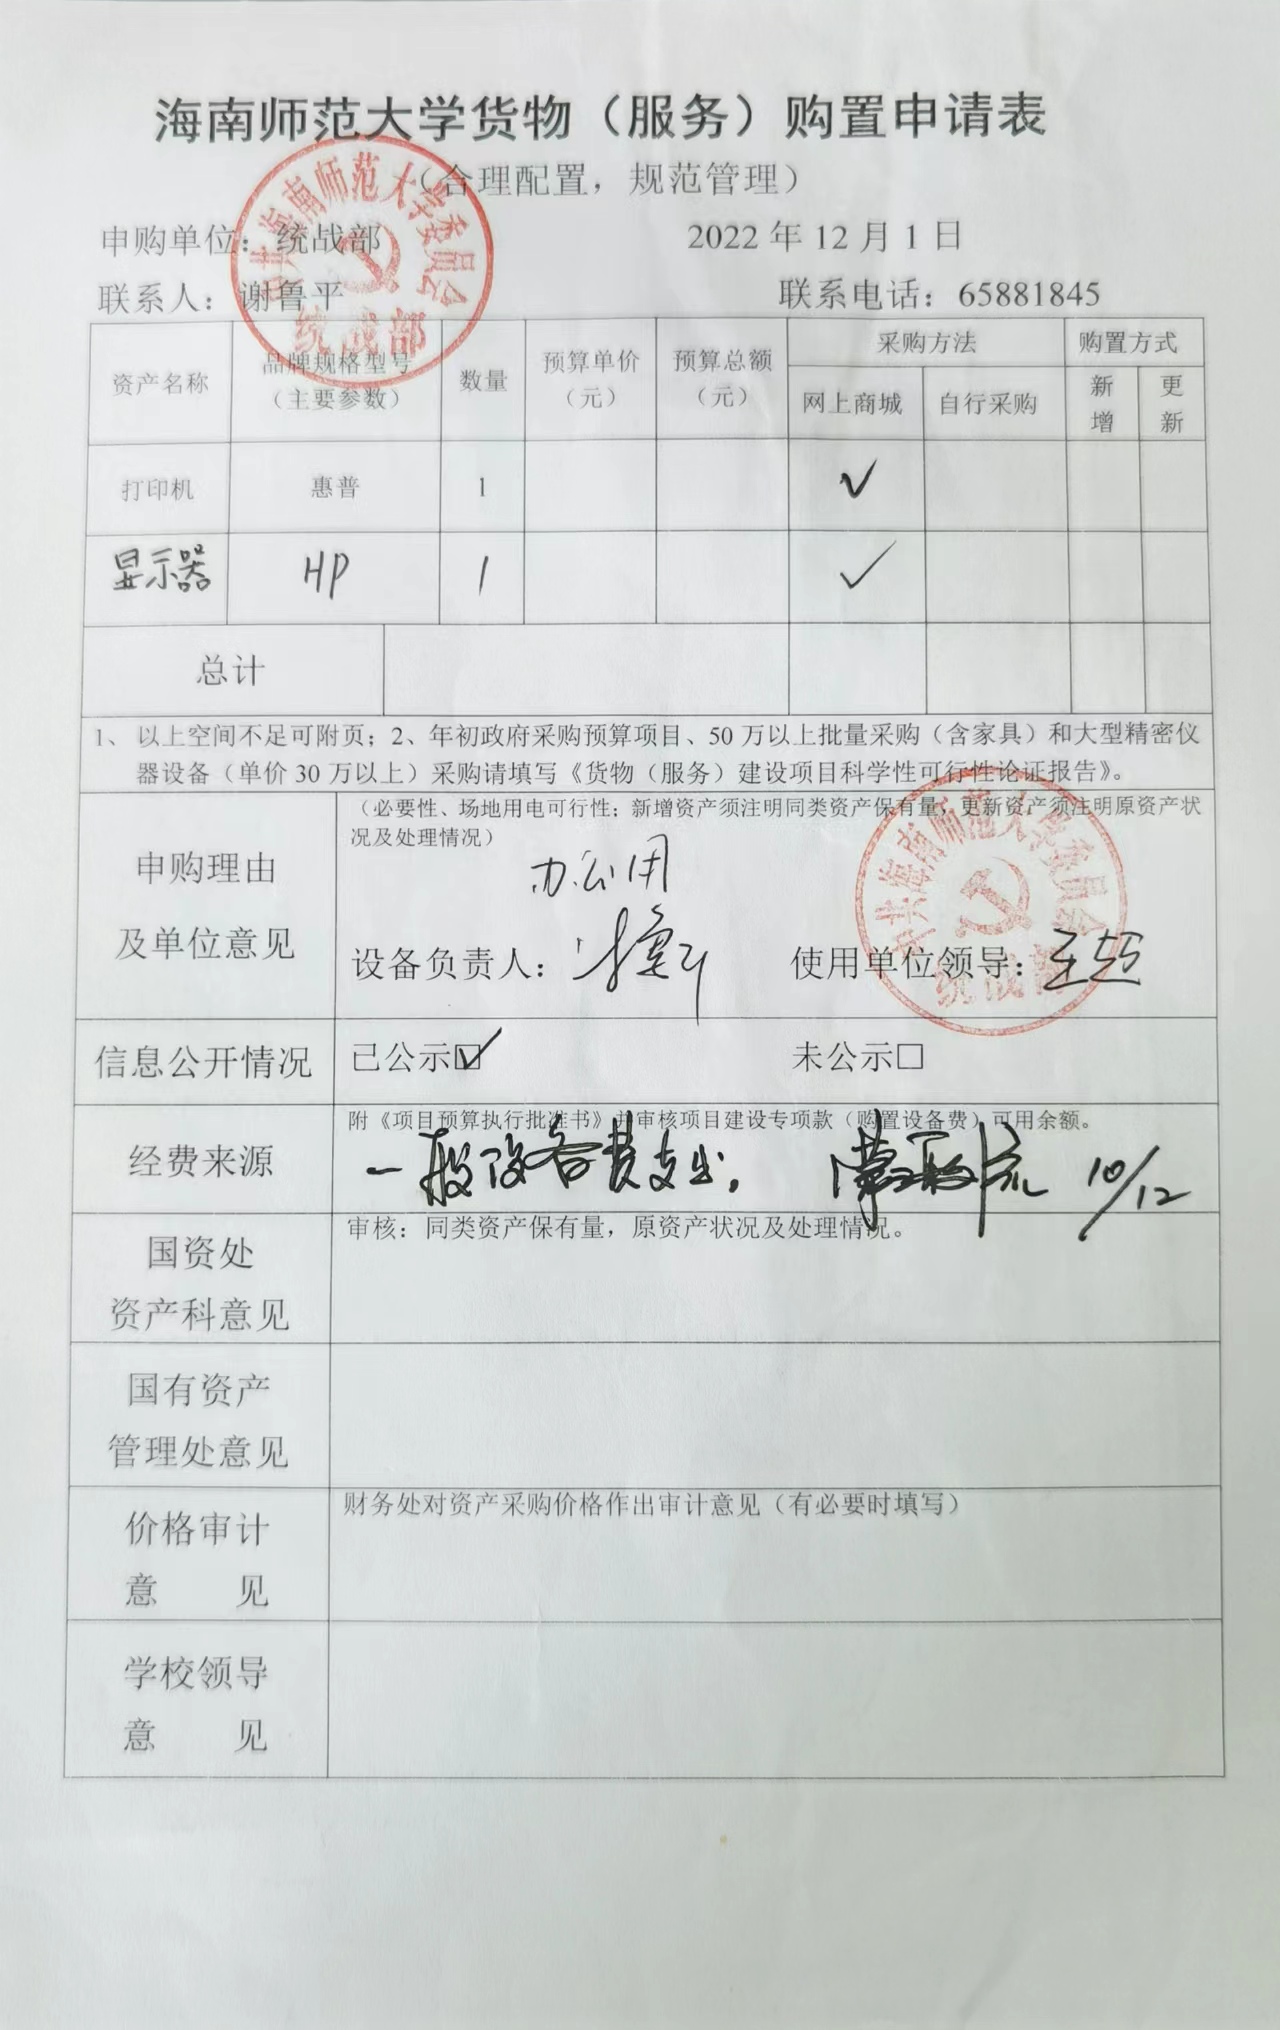 海南师范大学货物（服务）购置申请表
（合理配置，规范管理）
申购单位：统战部 2022年12月1日
联系人：谢鲁平 联系电话：65881845
中共海南师范大学委员会
统战部
资产名称 品牌规格型号 数量 预算单价 预算总额 采购方法 购置方式
（主要参数） （元） （元） 网上商城 自行采购 新增 更新
打印机 惠普 1 ✓
显示器 HP 1 ✓
总计
1、 以上空间不足可附页；2、年初政府采购预算项目、50万以上批量采购（含家具）和大型精密仪
器设备（单价30万以上）采购请填写《货物（服务）建设项目科学性可行性论证报告》。
申购理由
及单位意见
（必要性、场地用电可行性；新增资产须注明同类资产保有量，更新资产须注明原资产状
况及处理情况）
办公用
设备负责人： 使用单位领导：
中共海南师范大学委员会
统战部
信息公开情况 已公示☑ 未公示□
经费来源
附《项目预算执行批准书》并审核项目建设专项款（购置设备费）可用余额。
一般设备费支出。 10/12
国资处
资产科意见
审核：同类资产保有量，原资产状况及处理情况。
国有资产
管理处意见
价格审计
意 见
财务处对资产采购价格作出审计意见（有必要时填写）
学校领导
意 见